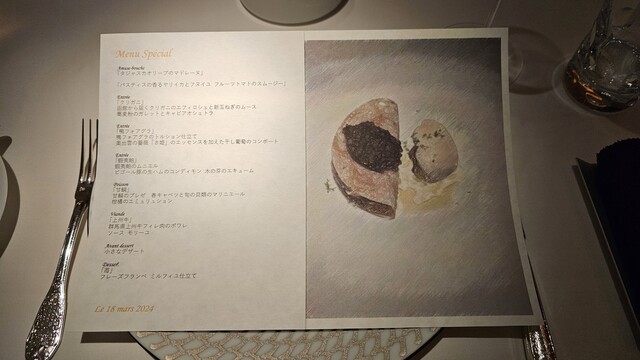 Menu Spécial
Amuse-bouche
「タジャスカオリーブのマドレーヌ」
「パスティスの香るヤリイカとフヌイユ フルーツトマトのスムージー」
Entrée
「クリガニ」
函館から届くクリガニのエフィロシェと新玉ねぎのムース
蕎麦粉のガレットとキャビアオシェトラ
Entrée
「鴨フォアグラ」
鴨フォアグラのトルション仕立て
奥出雲の薔薇「さ姫」のエッセンスを加えた干し葡萄のコンポート
Entrée
のムニエル
ビゴール豚の生ハムのコンディモン 木の芽のエキューム
Poisson
「甘鯛」
甘鯛のブレゼ 春キャベツと旬の貝類のマリニエール
柑橘のエミュルション
Viande
「上州牛」
群馬県上州牛フィレ肉のポワレ
ソース モリーユ
Avant dessert
小さなデザート
Dessert
「苺」
フレーズフランベ ミルフィユ仕立て
Le 18 mars 2024